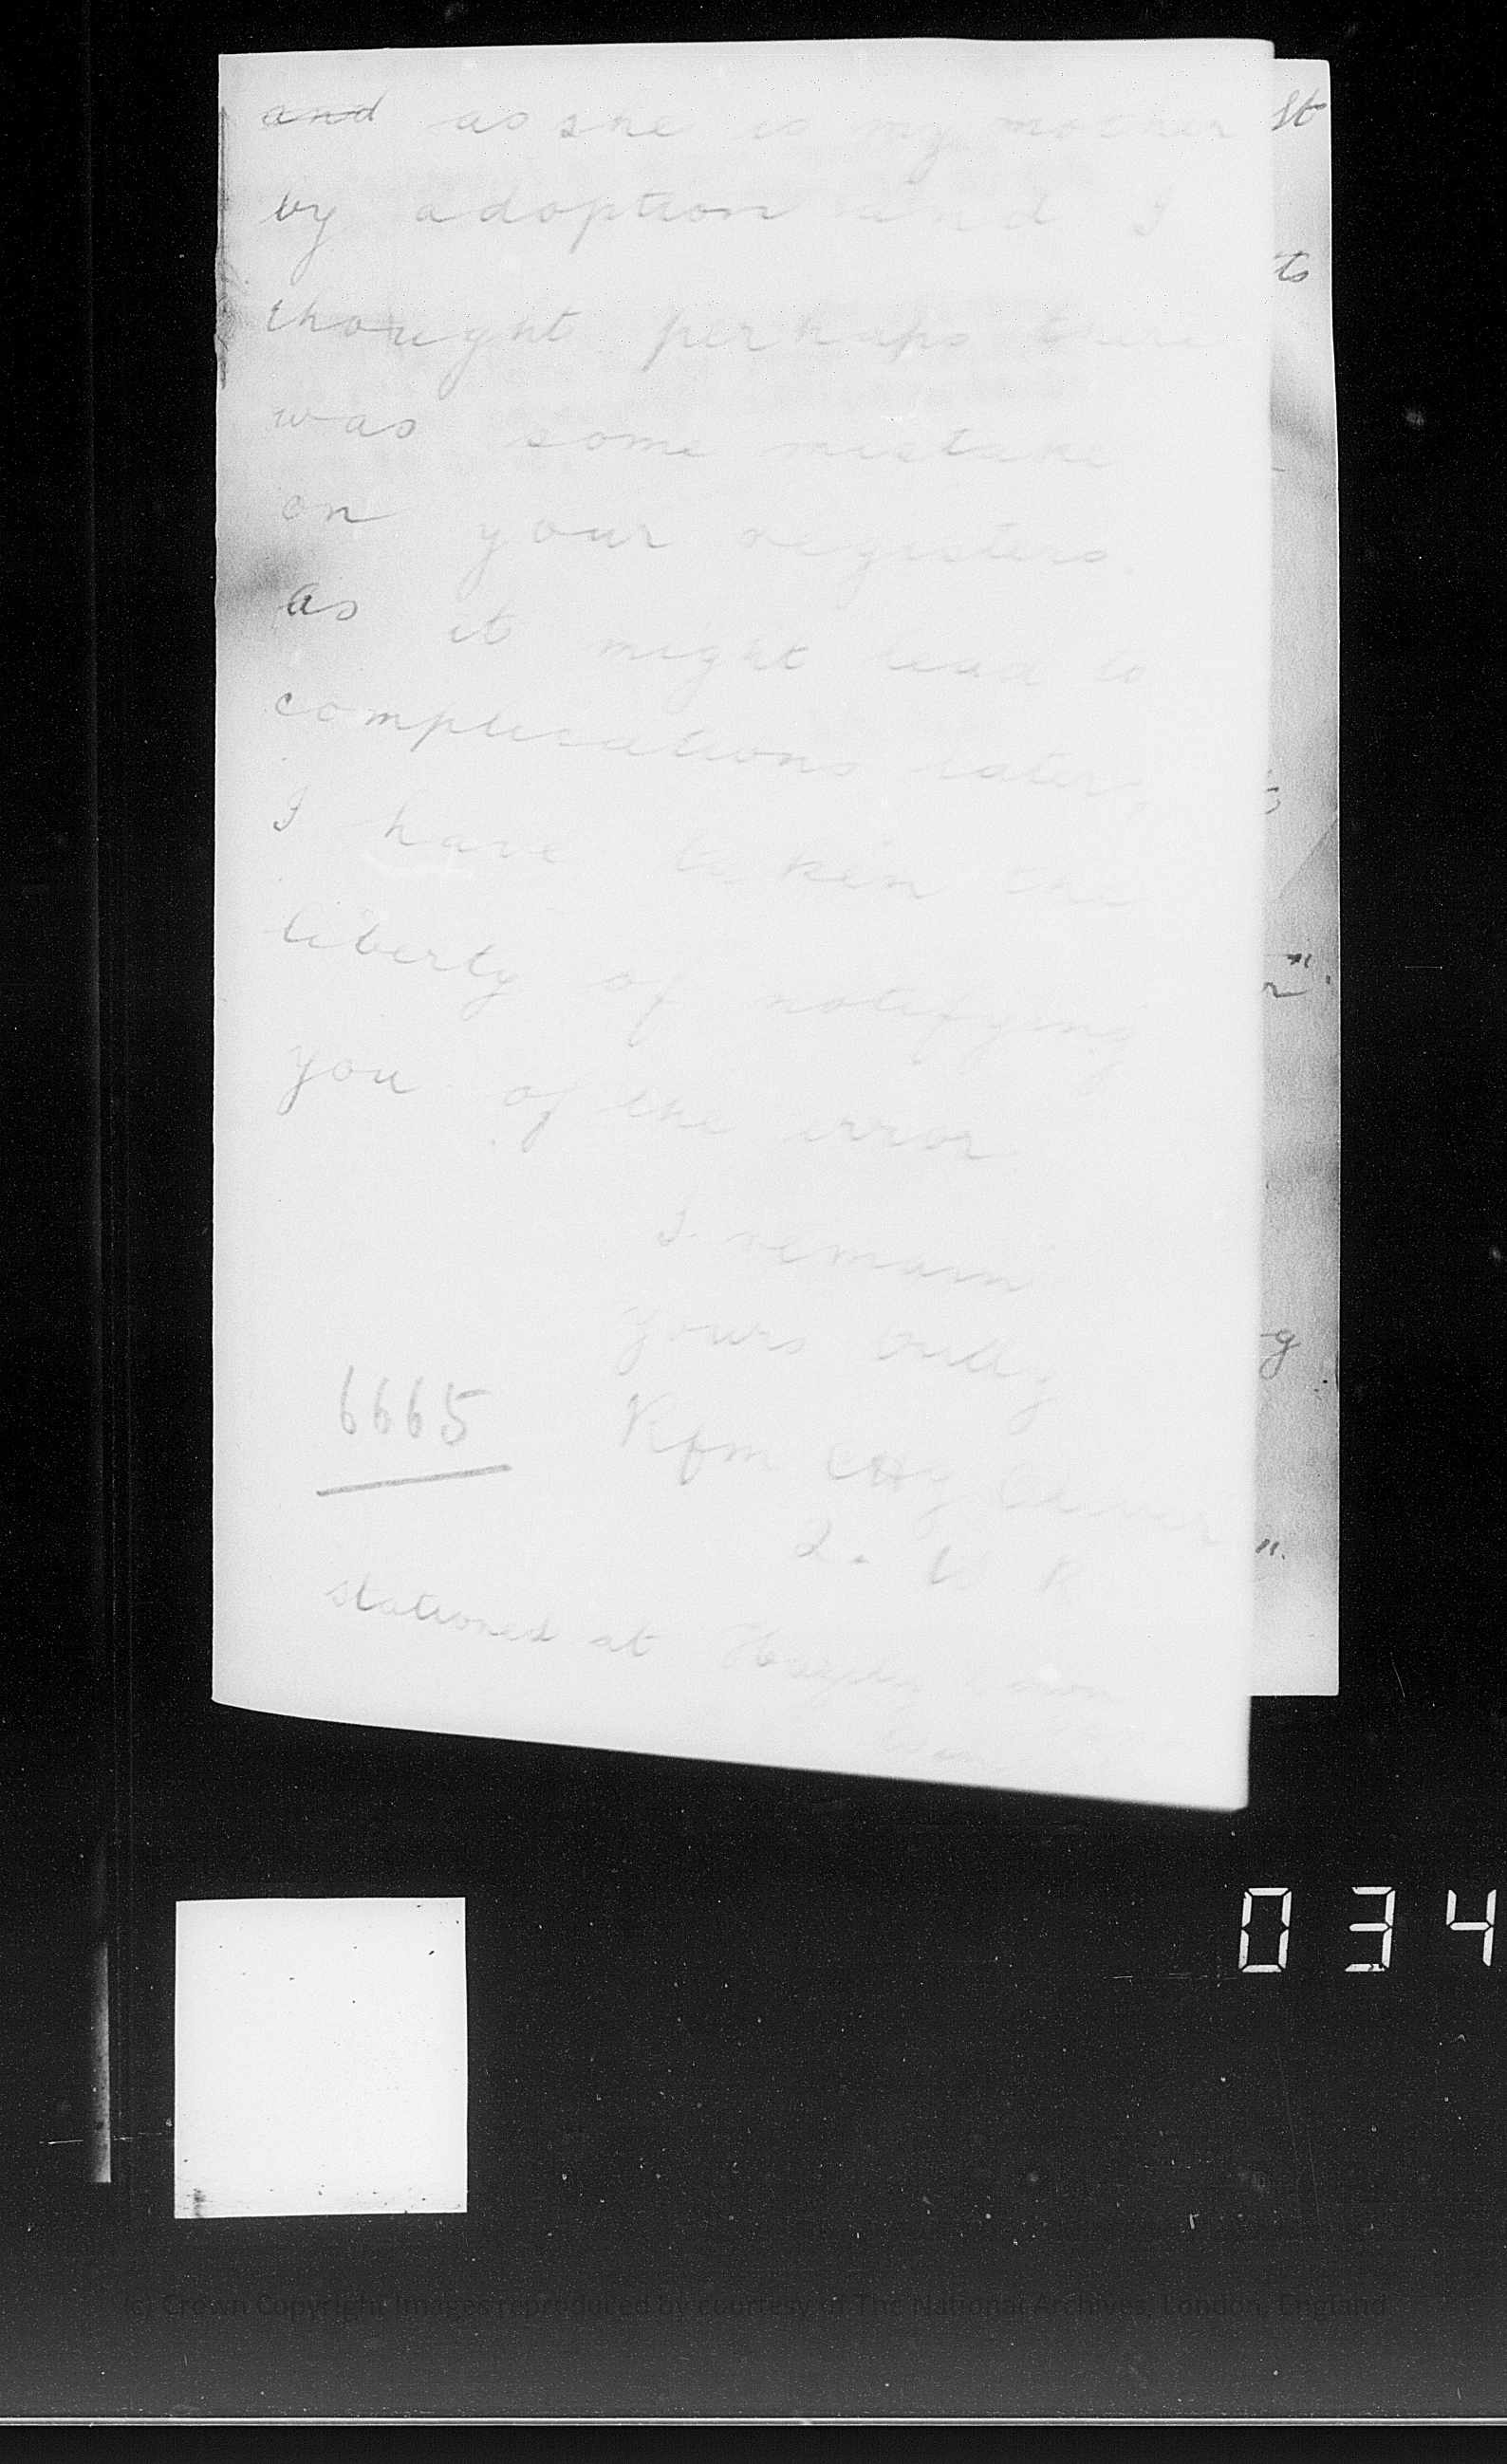 and as she is my mother
by adoption and I
thought perhaps there
was some mistake
on your registers.
as it might lead to
complications later,
I have taken the
liberty of notifying
you of the error
I remain
yours truly
6665 Rfm
2. R
stationed at
st
ts
g
034
(c) Crown Copyright Images reproduced by courtesy of The National Archives, London, England